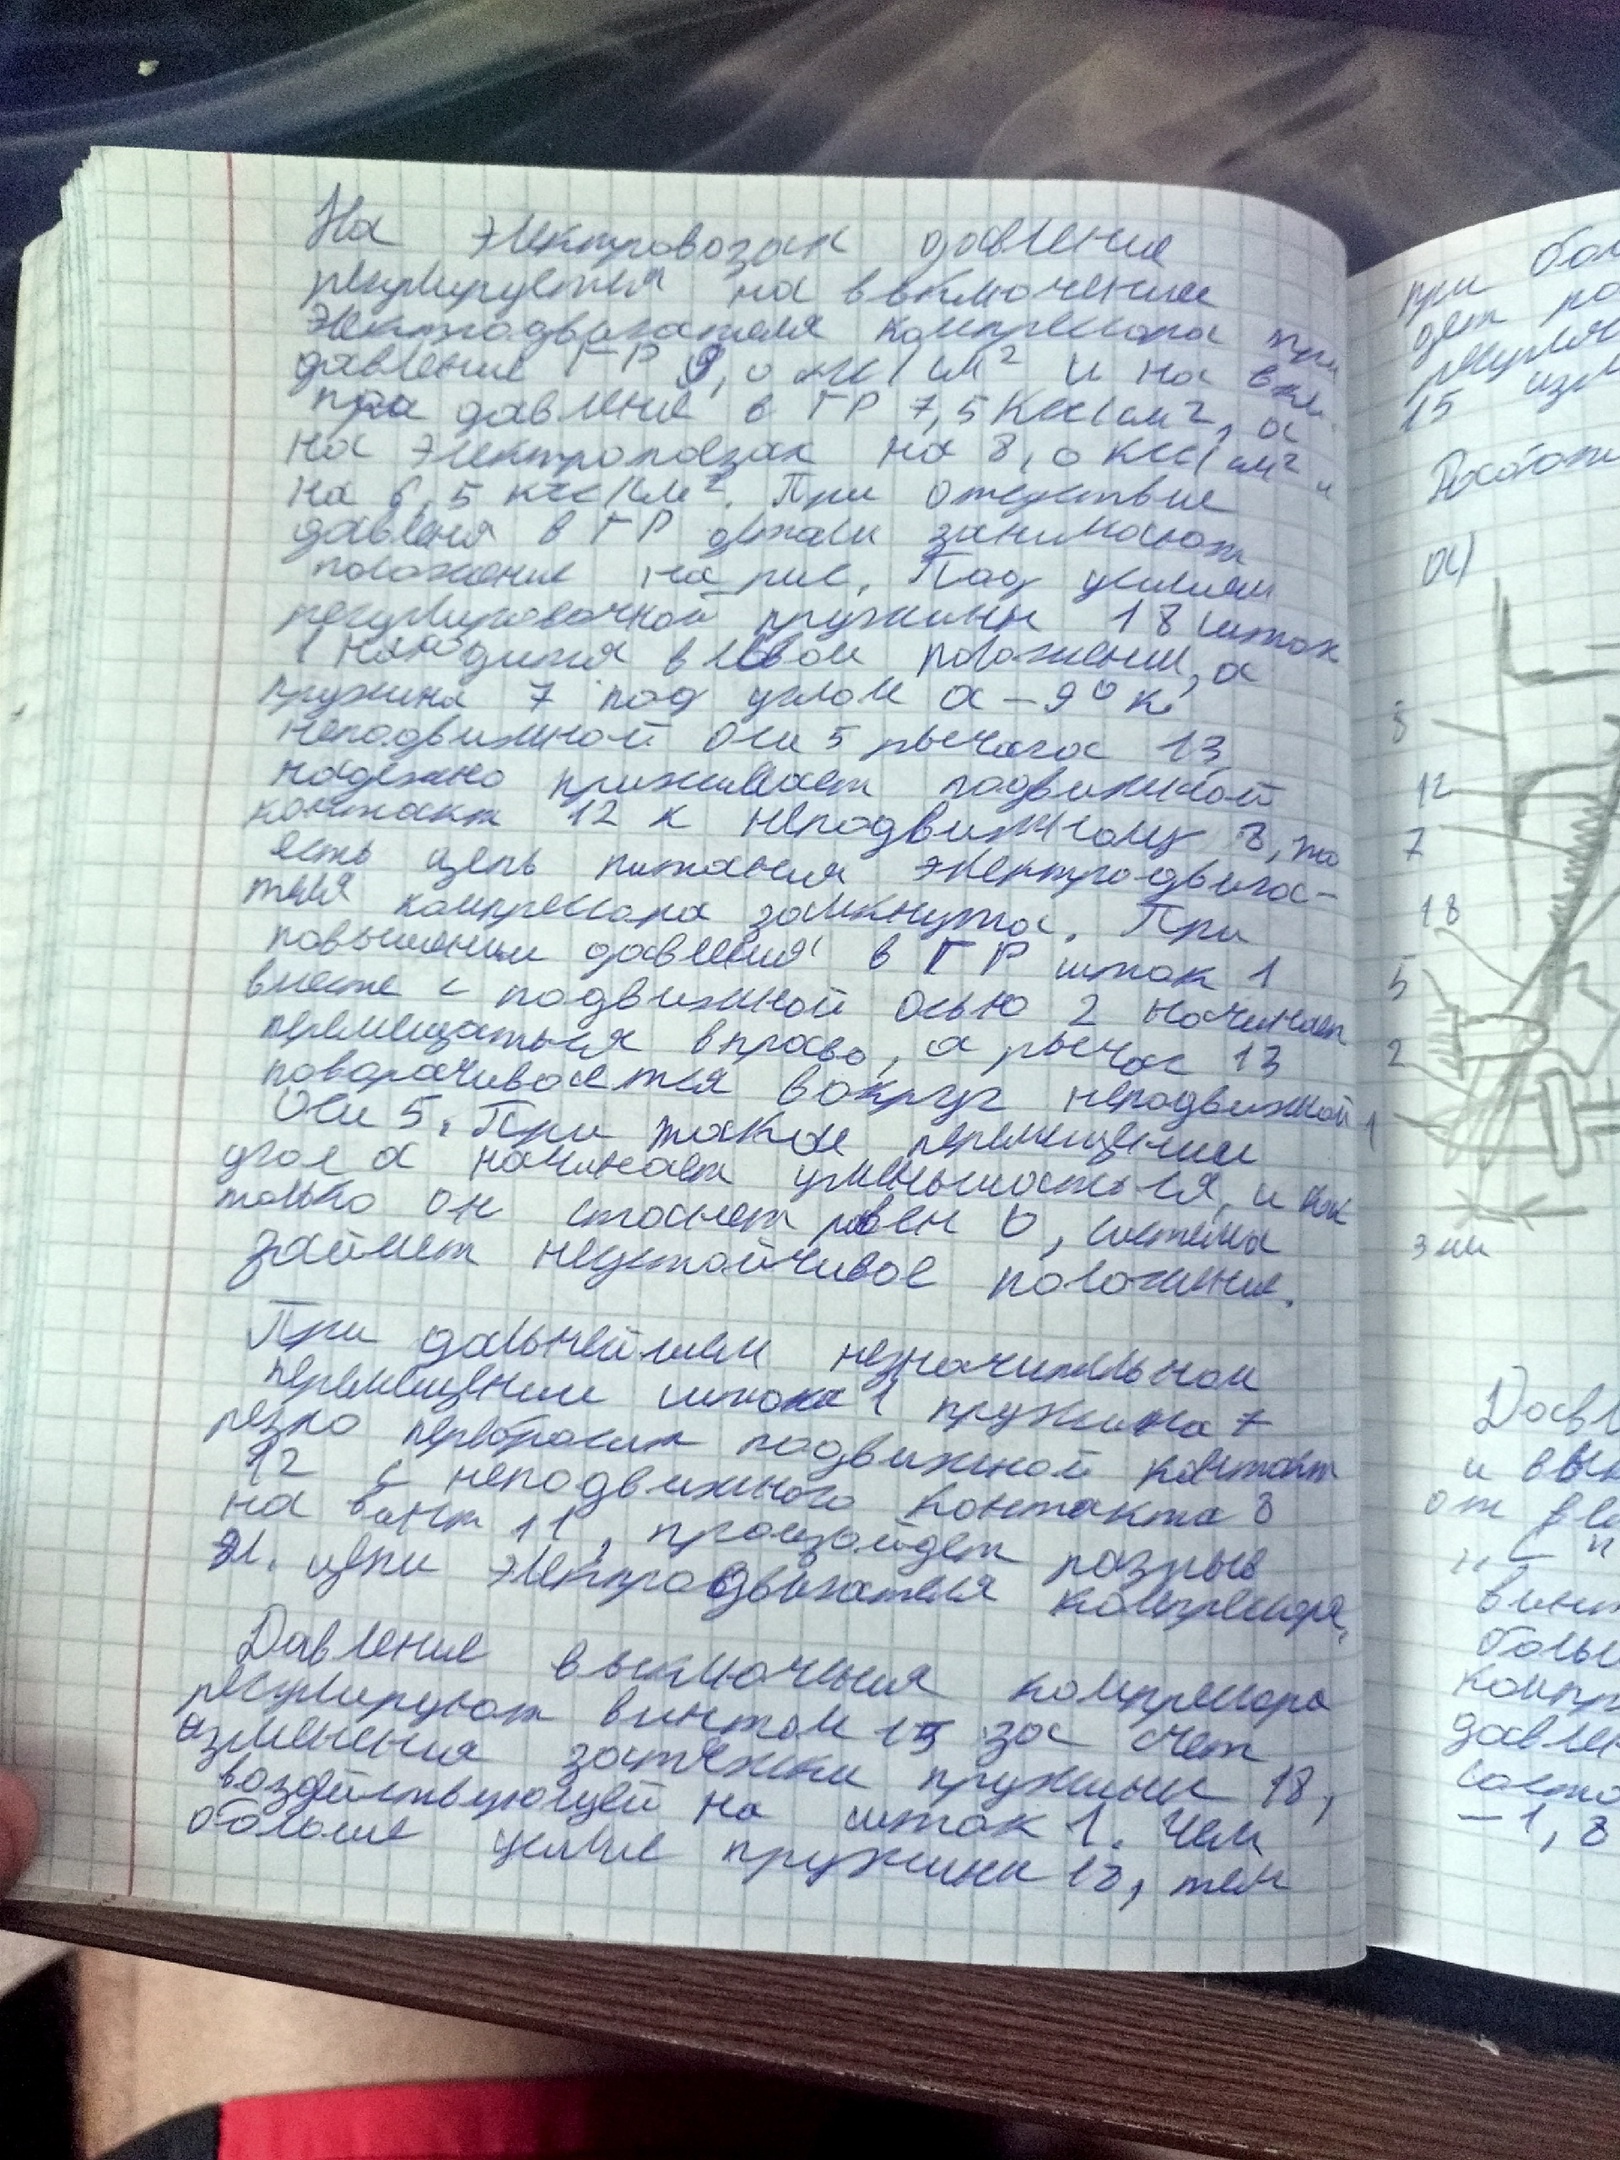 На электровозах давление
регулируется на ввключение
электродвигателя компрессора при
давление ГР 9,0 кгс/см² и на вкл.
при давление в ГР 7,5 Кгс/см², а
на электропоездах на 8,0 кгс/см² и
на 6,5 кгс/см². При отсутствие
давленя в ГР детали занимают
положение на рис. Под усилием
регулировочной пружины 18 шток
1 находится в левом положении, а
пружина 7 под углом α – 9° к
неподвижной оси 5 рычага 13
надежно прижимает подвижной
контакт 12 к неподвижному 8, то
есть цепь питания электродвига-
теля компрессора замкнута. При
повышении давления в ГР шток 1
вместе с подвижной осью 2 начинает
перемещаться вправо, а рычаг 13
поворачивается вокруг неподвижной
Оси 5. При таком перемещении
угол α начинает уменьшаться, и как
только он станет равен 0, система
займет неустойчивое положение.
При дальнейшем незначительном
перемещении штока 1 пружина 7
резко перебросит подвижной контакт
12 с неподвижного контакта 8
на винт 11, произойдет разрыв
эл. цепи электродвигателя компрессора.
Давление выключения компрессора
регулируют винтом 15 за счет
изменения затяжки пружины 18,
воздействующей на шток 1. Чем
больше усилие пружины 18, тем
при бол
дет ра
регуля
15 изм
Работа
а)
12
7
18
5
2
1
3 мм
Давл
и вык
от
винт
больш
компр
давле
соста
– 1, 8